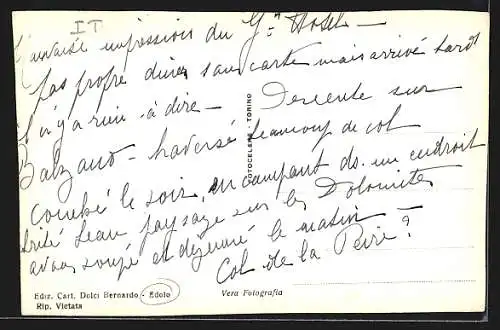 IT
Mauvaise impression du Gd Hotel -
pas propre diner sans carte mais arrivé tard
il n'y a rien à dire - Descente sur
Balzano - traversé beaucoup de col
le soir, en campant ds. un endroit
beau paysage sur les Dolomites
avons soupé et déjeuné le matin -
Col de la
FOTOCELERE - TORINO
Ediz. Cart. Dolci Bernardo - Edolo
Rip. Vietata
Vera Fotografia